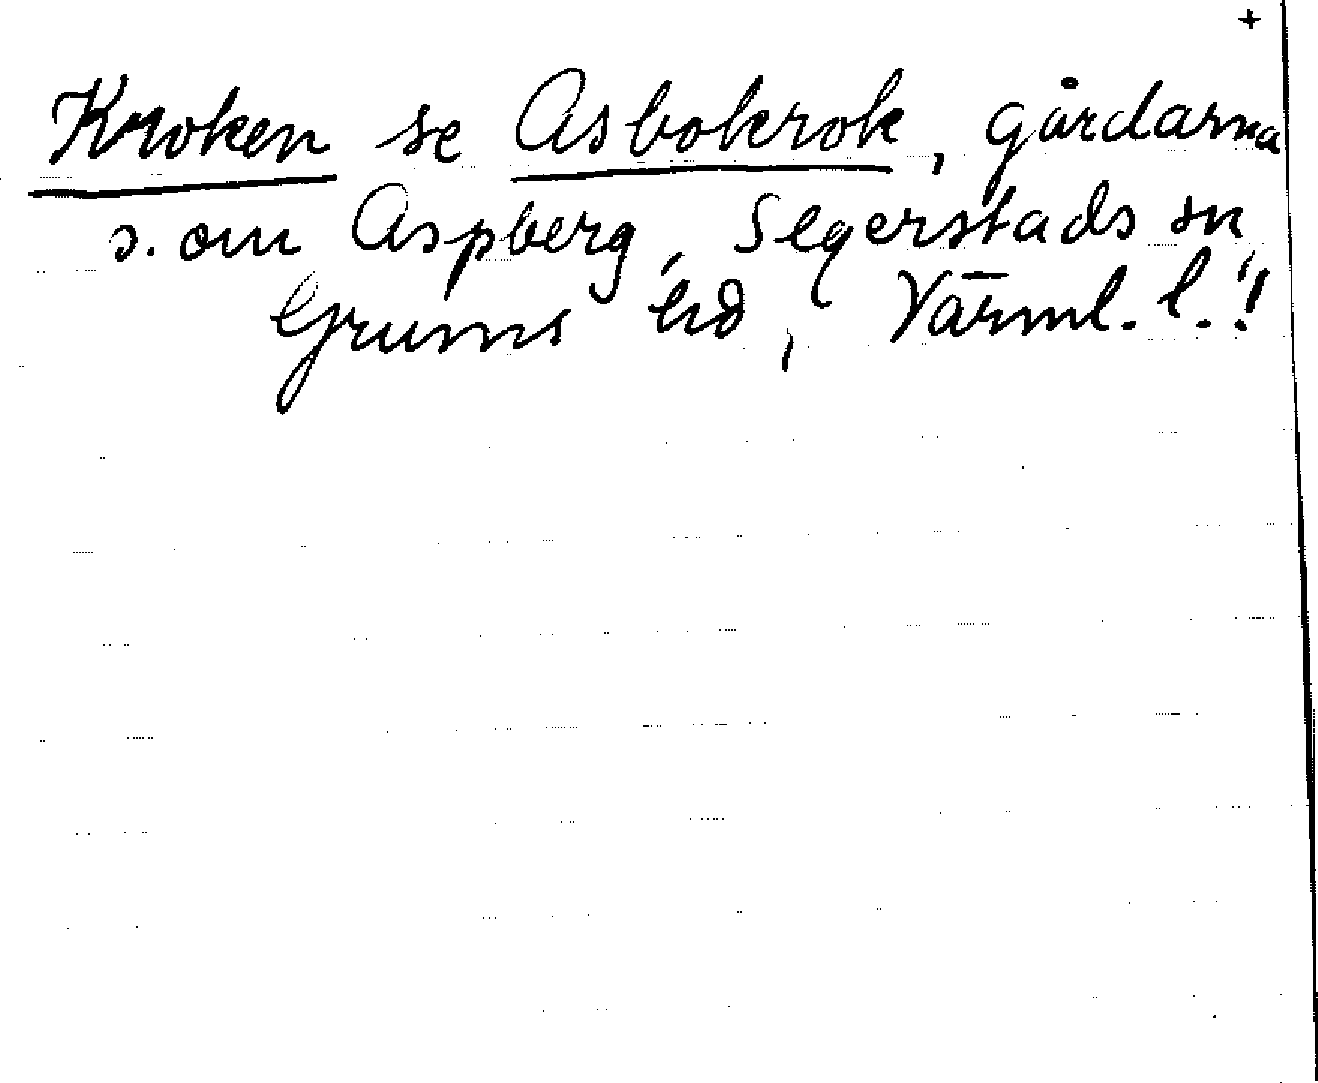 +
Kroken se Asbokrok, gårdarna
s. om Aspberg, Segerstads sn,
Grums hd, Värml. l.!